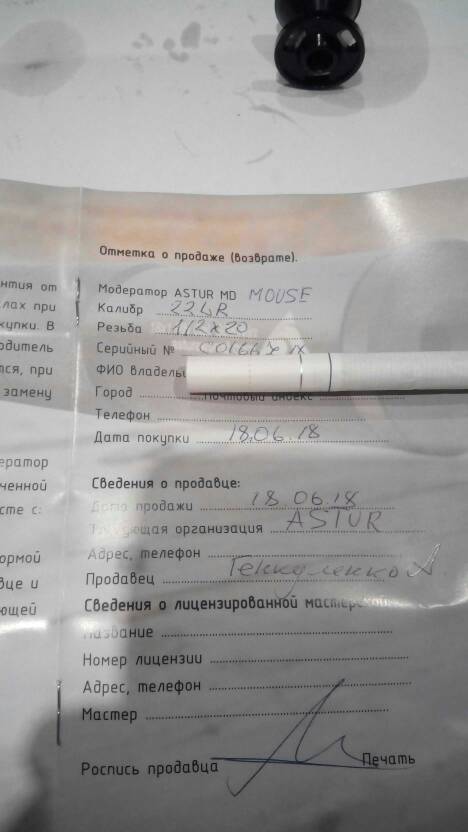 Отметка о продаже (возврате).
нтия от
Модератор ASTUR MD MOUSE
лах при
Калибр 22LR
купки. В
Резьба 1/2x20
одитель
Серийный №
тся, при
ФИО владель
замену
Город Почтовый индекс
Телефон
Дата покупки 18.06.18
ератор
Сведения о продавце:
ченной
Дата продажи 18.06.18
сте с:
Торгующая организация ASTUR
Адрес, телефон
ормой
Продавец
вце и
Сведения о лицензированной мастерской
ющей
Название
Номер лицензии
Адрес, телефон
Мастер
Роспись продавца Печать